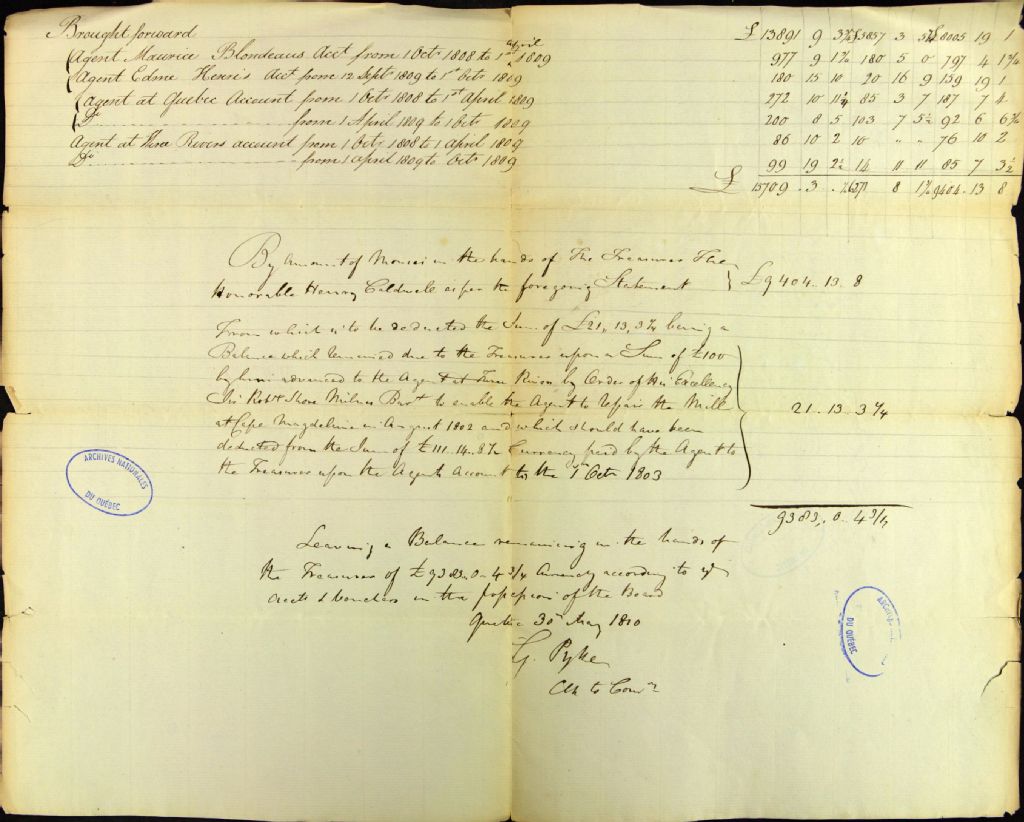 Brought forward £ 13891 9 3¾ £5857 3 5¾ £8005 19 1
Agent Maurice Blondeaus Acct from 1 Octr 1808 to 1st april 1809 977 9 1¾ 180 5 0 797 4 1¾
Agent Edme Henris Acct from 12 Septr 1809 to 1st Octr 1809 180 15 10 20 16 9 159 19 1
Agent at Quebec Account from 1 Octr 1808 to 1st April 1809 272 10 11¼ 85 3 7 187 7 4
Do from 1 April 1809 to 1 Octr 1809 200 8 5 103 7 5½ 92 6 6¾
Agent at Three Rivers account from 1 Octr 1808 to 1 April 1809 86 10 2 10 " " 76 10 2
Do from 1 april 1809 to Octr 1809 99 19 2½ 14 11 11 85 7 3½
£ 15709 . 3 . 8 9404 . 13 8
By Amount of Monies in the hands of The Treasurer The
Honorable Henry Caldwell as per the foregoing Statement } £9404 .. 13 .. 8
From which is to be deducted the Sum of £21, 13, 3¾ being a
Balance which remained due to the Treasurer upon a Sum of £100
by him advanced to the Agent at Three Rivers by Order of His Excellency
Sir Robt Shore Milnes Bart to enable the Agent to repair the Mill 21 .. 13 .. 3¾
at Cape Magdeleine in August 1802 and which should have been
deducted from the Sum of £111 .. 14 .. 8½ Currency paid by the Agent to
the Treasurer upon the Agents Account to the 1st Octr 1803
9383 .. 0 .. 4¾
Leaving a Balance remaining in the hands of
the Treasurer of £9383 .. 0 .. 4¾ Currency according to ye
accts & Vouchers in the possession of the Board
Quebec 30th May 1810
G. Pyke
Clk to Comrs
ARCHIVES NATIONALES
DU QUÉBEC
DU QUÉBEC